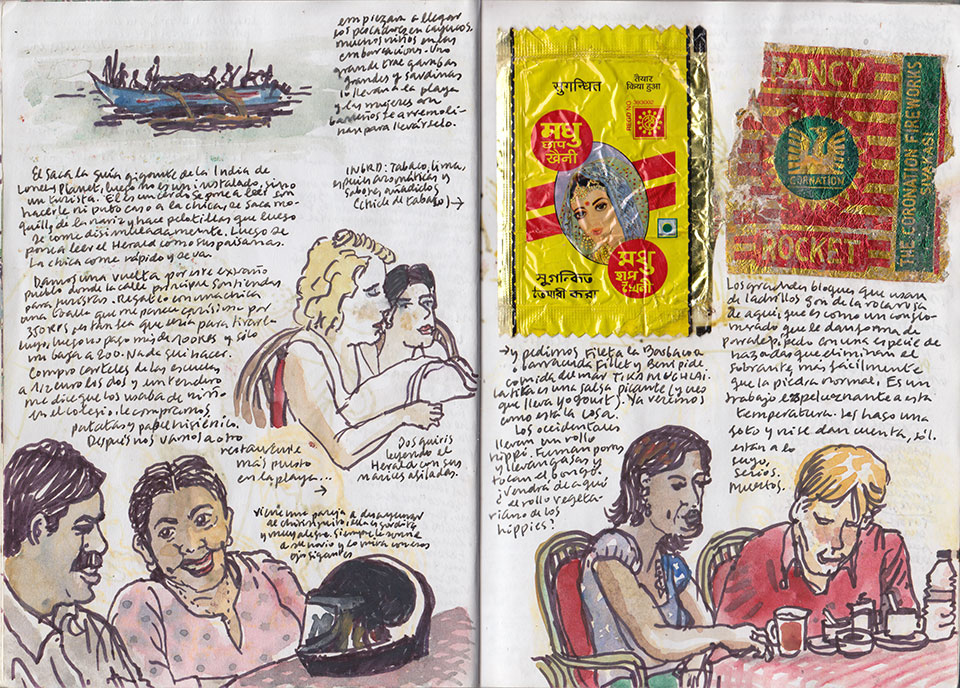 empiezan a llegar
los pescadores en cayucos.
muchos niños en las
embarcaciones. Uno
grande trae gambas
grandes y sardinas
lo llevan a la playa
y las mujeres con
barreños se arremoli-
nan para llevárselo.
INGRD: Tabaco, lima,
especias aromáticas y
sabores añadidos
(chicle de tabaco) →
El saca la guía gigante de la India de
Lonely Planet, luego no es un instalado, sino
un turista. El es un cerdo se pone a leer sin
hacerle ni puto caso a la chica, se saca mo-
quillos de la nariz y hace pelotillas que luego
se come disimuladamente. Luego se
pone a leer el Herald como sus paisanas.
La chica come rápido y se va.
Damos una vuelta por este extraño
pueblo donde la calle principal son tiendas
para guiris. Regateo con una chica
una toalla que me parece carísima por
350 RS
luego no pago más de 100 RS y sólo
me baja a 200. Nada que hacer.
Compro carteles de las escuelas
a 1/2 euro los dos y un tendero
me dice que los usaba de niño
en el colegio. Le compramos
patatas y papel higiénico.
Después nos vamos a otro
restaurante
más puesto
en la playa...
→
Dos guiris
leyendo el
Herald con sus
narices afiladas.
Viene una pareja a desayunar
al chiringuito. Ella es gordita
y muy alegre. Siempre le sonríe
a su novio y lo mira con unos
ojos gigantes
सुगन्धित
तैयार
किया हुआ
मधु
छाप
खैनी
मधु
छाप
खैनी
FANCY
CORNATION
ROCKET
THE CORONATION FIREWORKS
SIVAKASI
→ y pedimos Fileta la Basbaoa
y barracuda Fillet y Beni pide
comida del mar Tika Masala.
La tika es una salsa picante (y creo
que lleva yogourt). Ya veremos
como está la cosa.
Los occidentales
llevan un rollo
hippi. Fuman porros
y llevan gasas y
tocan el bongo.
¿vendrá de aquí
el rollo vegeta-
riano de los
hippies?
Los grandes bloques que usan
de ladrillos son de la roca roja
de aquí, que es como un conglo-
merado que le dan forma de
paralepípedo con una especie de
hazadas que eliminan el
sobrante más facilmente
que la piedra normal. Es un
trabajo espeluznante a esta
temperatura. Les hago una
foto y ni se dan cuenta, sólo
están a lo
suyo,
serios.
Muertos.